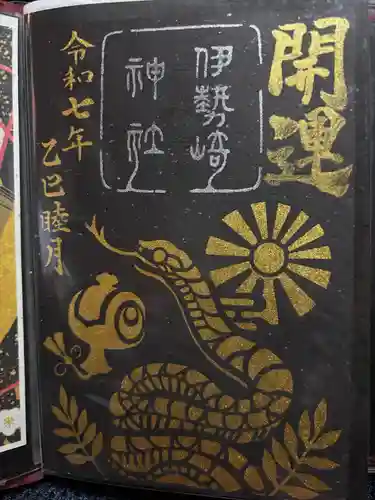 開運
伊勢崎
神社
令和七年
乙巳睦月